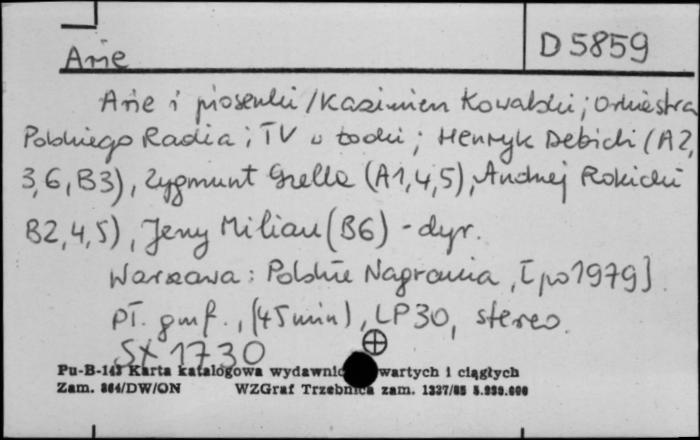 Arie
D 5859
Arie i piosenki / Kazimierz Kowalski ; Orkiestra
Polskiego Radia i TV w Łodzi ; Henryk Debich (A2,
3,6, B3), Zygmunt Grella (A1,4,5), Andrzej Rokicki
B2,4,5), Jerzy Milian (B6) - dyr.
Warszawa : Polskie Nagrania, [po 1979].
Pł. gmf., (45 min), LP30, stereo.
SX 1730
Pu-B-143 Karta katalogowa wydawnic wartych i ciągłych
Zam. 864/DW/ON WZGraf Trzebnica zam. 1337/85